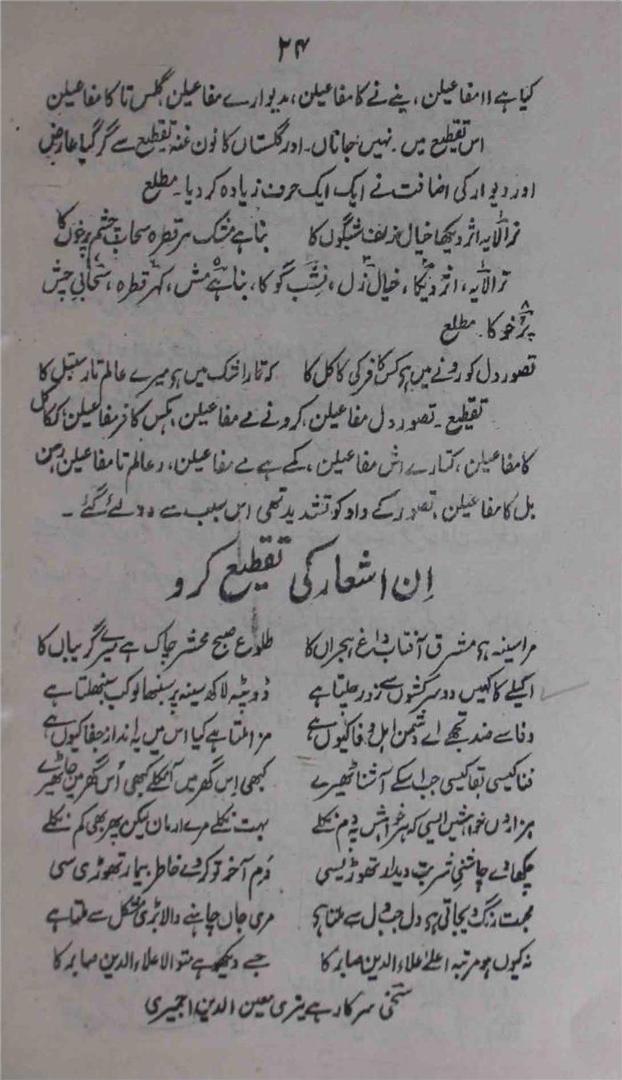 ۲۴
کیا ہے اا مفاعیلن، پنے نے کا مفاعیلن، مدیوارے مفاعیلن، گلس تا کا مفاعیلن
اس تقطیع میں۔ نہیں جاناں۔ اور گلستاں کا نون غنہ تقطیع سے گر گیا
اور دیوار کی اضافت نے ایک ایک حرف زیادہ کر دیا۔ مطلع
نرالا یہ اثر دیکھا خیال زلف شبگوں کا بنا ہے مشک ہر قطرہ سحاب چشم پرخوں کا
نرالا یہ، اثر دیکا، خیال زل، شب گو کا، بنا ہے مش، کہر قطرہ، سحابی چش
پرخو کا۔ مطلع
تصور دل کو رونے میں ہو کس کافر کی کاکل کا کہ تار اشک میں ہو میرے عالم تار سنبل کا
تقطیع۔ تصور دل مفاعیلن، کرونے مے مفاعیلن، کس کافر مفاعیلن، ککاکل
کا مفاعیلن، کتارے اش مفاعیلن، کمے ہے مے مفاعیلن، رعالم تا مفاعیلن، رسن
بل کا مفاعیلن، تصور کے واو کو تشدید تھی اس سبب سے دو لئے گئے۔
اِن اشعار کی تقطیع کرو
مرا سینہ ہو مشرق آفتاب داغ ہجراں کا طلوع صبح محشر چاک ہے میرے گریباں کا
اکیلے کا کہیں دو سرکشوں سے زور چلتا ہے دوپٹہ لاکھ سینہ پر سنبھالو کب سنبھلتا ہے
وفا سے ضد تجھے اے دشمن اہل وفا کیوں ہے مزا ملتا ہے کیا اس میں یہ انداز جفا کیوں ہے
فنا کیسی بقا کیسی جب اسکے آشنا ٹھیرے کبھی اِس گھر میں آنکلے کبھی اُس گھر میں جا ٹھیرے
ہزاروں خواہشیں ایسی کہ ہر خواہش پہ دم نکلے بہت نکلے مرے ارمان لیکن پھر بھی کم نکلے
چکھا دے چاشنی شربت دیدار تھوڑی سی دم آخر تو کر دے خاطر بیمار تھوڑی سی
محبت رنگ دیجاتی ہو دل جب دل سے ملتا ہو مری جاں چاہنے والا بڑی مشکل سے ملتا ہے
نہ کیوں ہو مرتبہ اعلےٰ علاءالدین صابر کا جسے دیکھو ہے متوالا علاءالدین صابر کا
سخی سرکار ہے تیری معین الدین اجمیری